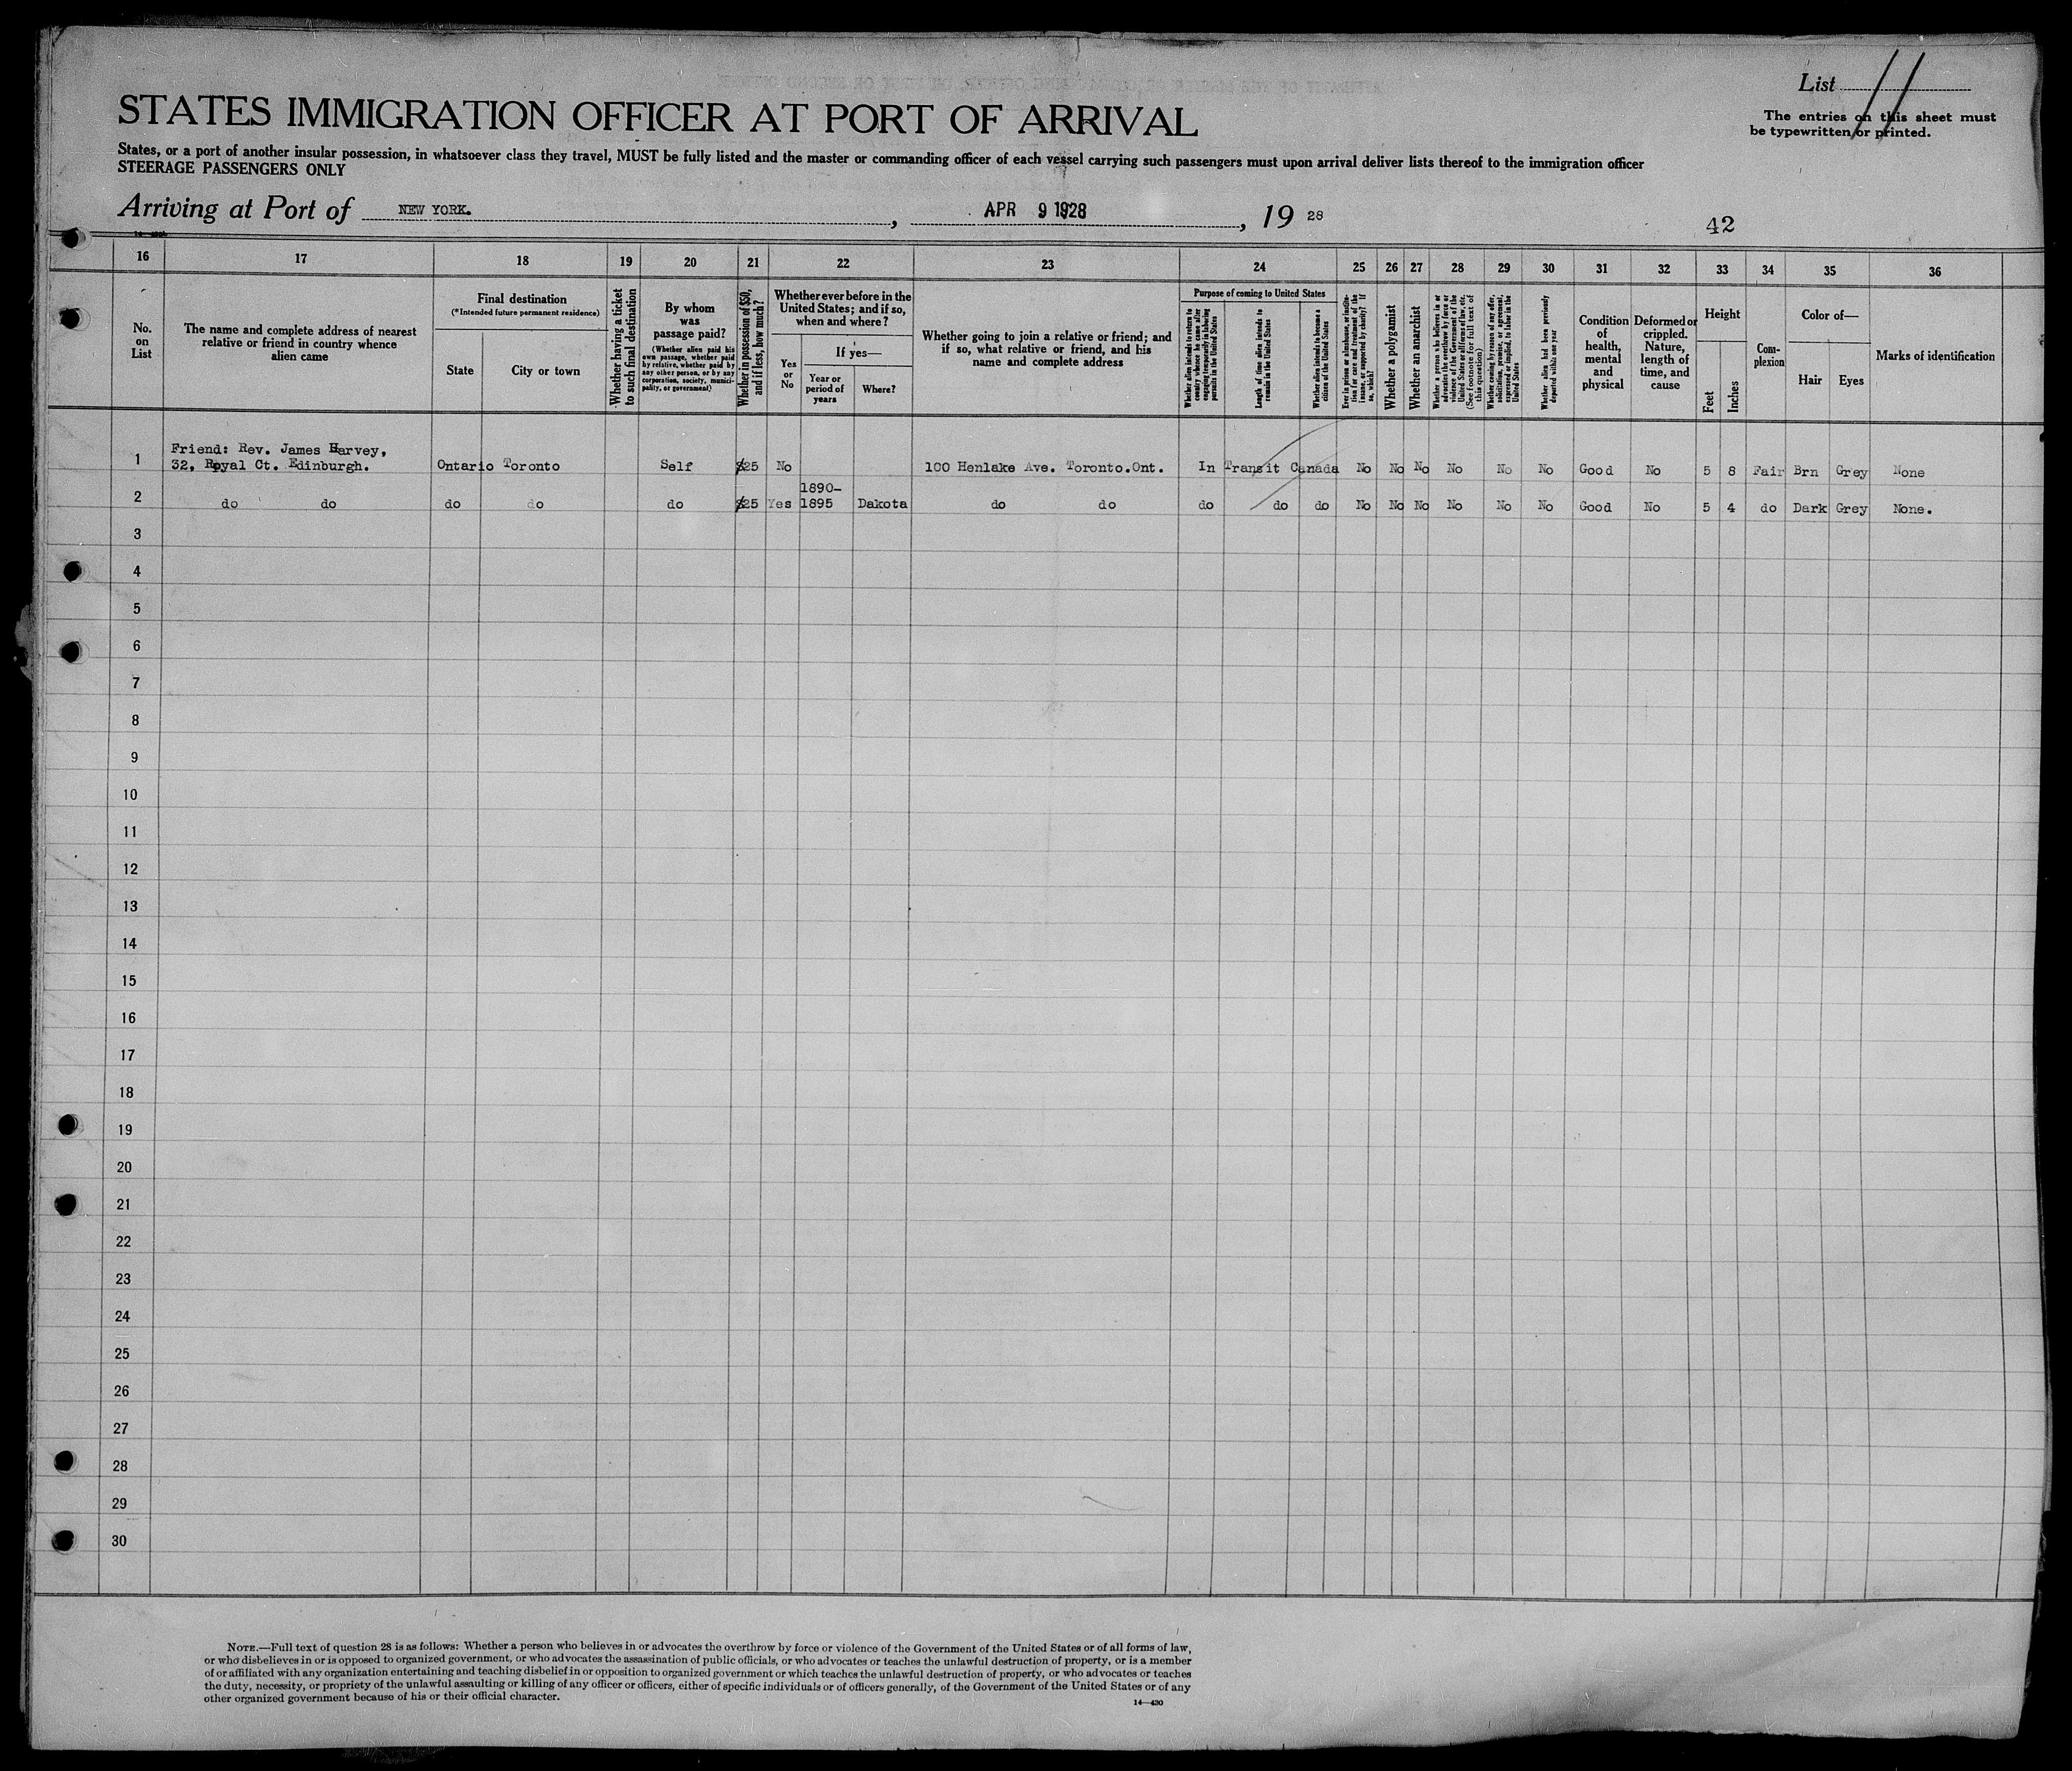 List 11
The entries on this sheet must
be typewritten or printed.
STATES IMMIGRATION OFFICER AT PORT OF ARRIVAL
States, or a port of another insular possession, in whatsoever class they travel, MUST be fully listed and the master or commanding officer of each vessel carrying such passengers must upon arrival deliver lists thereof to the immigration officer
STEERAGE PASSENGERS ONLY
Arriving at Port of NEW YORK. , APR 9 1928 , 19 28
42
16 17 18 19 20 21 22 23 24 25 26 27 28 29 30 31 32 33 34 35 36
No.
on
List
The name and complete address of nearest
relative or friend in country whence
alien came
Final destination
(*Intended future permanent residence)
State
City or town
Whether having a ticket
to such final destination
By whom
was
passage paid?
(Whether alien paid his
own passage, whether paid
by relative, whether paid by
any other person, or by any
corporation, society, munici-
pality, or government)
Whether in possession of $50,
and if less, how much?
Whether ever before in the
United States; and if so,
when and where?
Yes
or
No
If yes—
Year or
period of
years
Where?
Whether going to join a relative or friend; and
if so, what relative or friend, and his
name and complete address
Purpose of coming to United States
Whether alien intends to return to
country whence he came after
engaging temporarily in laboring
pursuits in the United States
Length of time alien intends to
remain in the United States
Whether alien intends to become a
citizen of the United States
Ever in prison or almshouse, or institu-
tion for care and treatment of the
insane, or supported by charity? If
so, which?
Whether a polygamist
Whether an anarchist
Whether a person who believes in or
advocates the overthrow by force or
violence of the Government of the
United States or all forms of law, etc.
(See footnote for full text of
this question)
Whether coming by reason of any offer,
solicitation, promise, or agreement,
expressed or implied, to labor in the
United States
Whether alien had been previously
deported within one year
Condition
of
health,
mental
and
physical
Deformed or
crippled.
Nature,
length of
time, and
cause
Height
Feet
Inches
Com-
plexion
Color of—
Hair
Eyes
Marks of identification
Friend: Rev. James Harvey,
1 32, Royal Ct. Edinburgh. Ontario Toronto Self $25 No 100 Henlake Ave. Toronto.Ont. In Transit Canada No No No No No No Good No 5 8 Fair Brn Grey None
1890-
2 do do do do do $25 Yes 1895 Dakota do do do do do No No No No No No Good No 5 4 do Dark Grey None.
3
4
5
6
7
8
9
10
11
12
13
14
15
16
17
18
19
20
21
22
23
24
25
26
27
28
29
30
NOTE.—Full text of question 28 is as follows: Whether a person who believes in or advocates the overthrow by force or violence of the Government of the United States or of all forms of law,
or who disbelieves in or is opposed to organized government, or who advocates the assassination of public officials, or who advocates or teaches the unlawful destruction of property, or is a member
of or affiliated with any organization entertaining and teaching disbelief in or opposition to organized government or which teaches the unlawful destruction of property, or who advocates or teaches
the duty, necessity, or propriety of the unlawful assaulting or killing of any officer or officers, either of specific individuals or of officers generally, of the Government of the United States or of any
other organized government because of his or their official character.
14—430